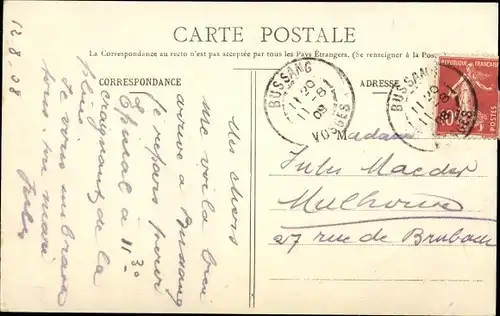 CARTE POSTALE
La Correspondance au recto n'est pas acceptée par tous les Pays Étrangers. (Se renseigner à la Pos
CORRESPONDANCE
ADRESSE
BUSSANG
11 20
11 8
08
VOSGES
BUSSANG
11 20
11 8
08
VOSGES
REPUBLIQUE FRANÇAISE
10
POSTES
12.8.08
Mes chers
Me voilà bien
arrivé à Bussang
je repars pour
Epinal à 11 30
craignant de la
pluie
Je vous embrasse
tous
Jules
Madame
Jules
Mulhouse
27 rue de